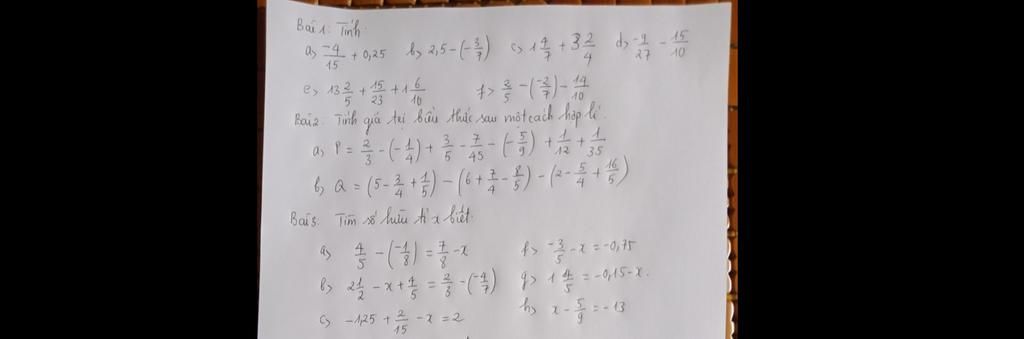 Bài 1: Tính.
a) -4/15 + 0,25 b) 2,5 - (-3/7) c) 1 4/7 + 3 2/4 d) -9/27 - 15/10
e) 13 2/5 + 15/23 + 1 6/10 f) 2/5 - (-2/7) - 19/10
Bài 2: Tính giá trị biểu thức sau một cách hợp lí.
a) P = 2/3 - (-1/4) + 3/5 - 7/45 - (-5/9) + 1/12 + 1/35
b) Q = (5 - 3/4 + 1/5) - (6 + 7/4 - 8/5) - (2 - 5/4 + 16/5)
Bài 3: Tìm số hữu tỉ x biết.
a) 4/5 - (-1/8) = 7/8 - x f) -3/5 - x = -0,75
b) 2 1/2 - x + 4/5 = 2/3 - (-4/7) g) 1 4/5 = -0,15 - x.
c) -1,25 + 2/15 - x = 2 h) x - 5/9 = -13